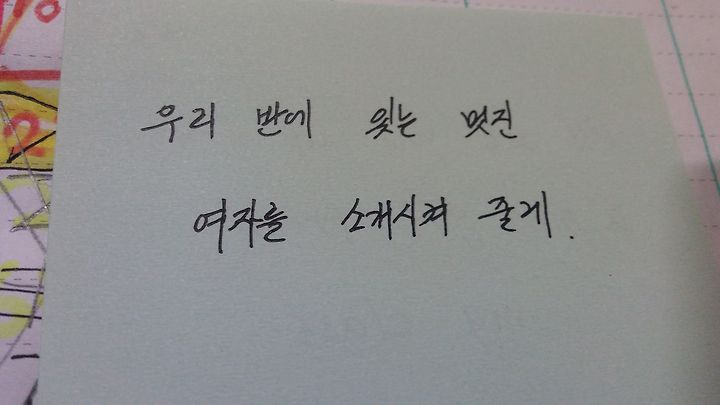 우리 반에 있는 멋진
여자를 소개시켜 줄게.